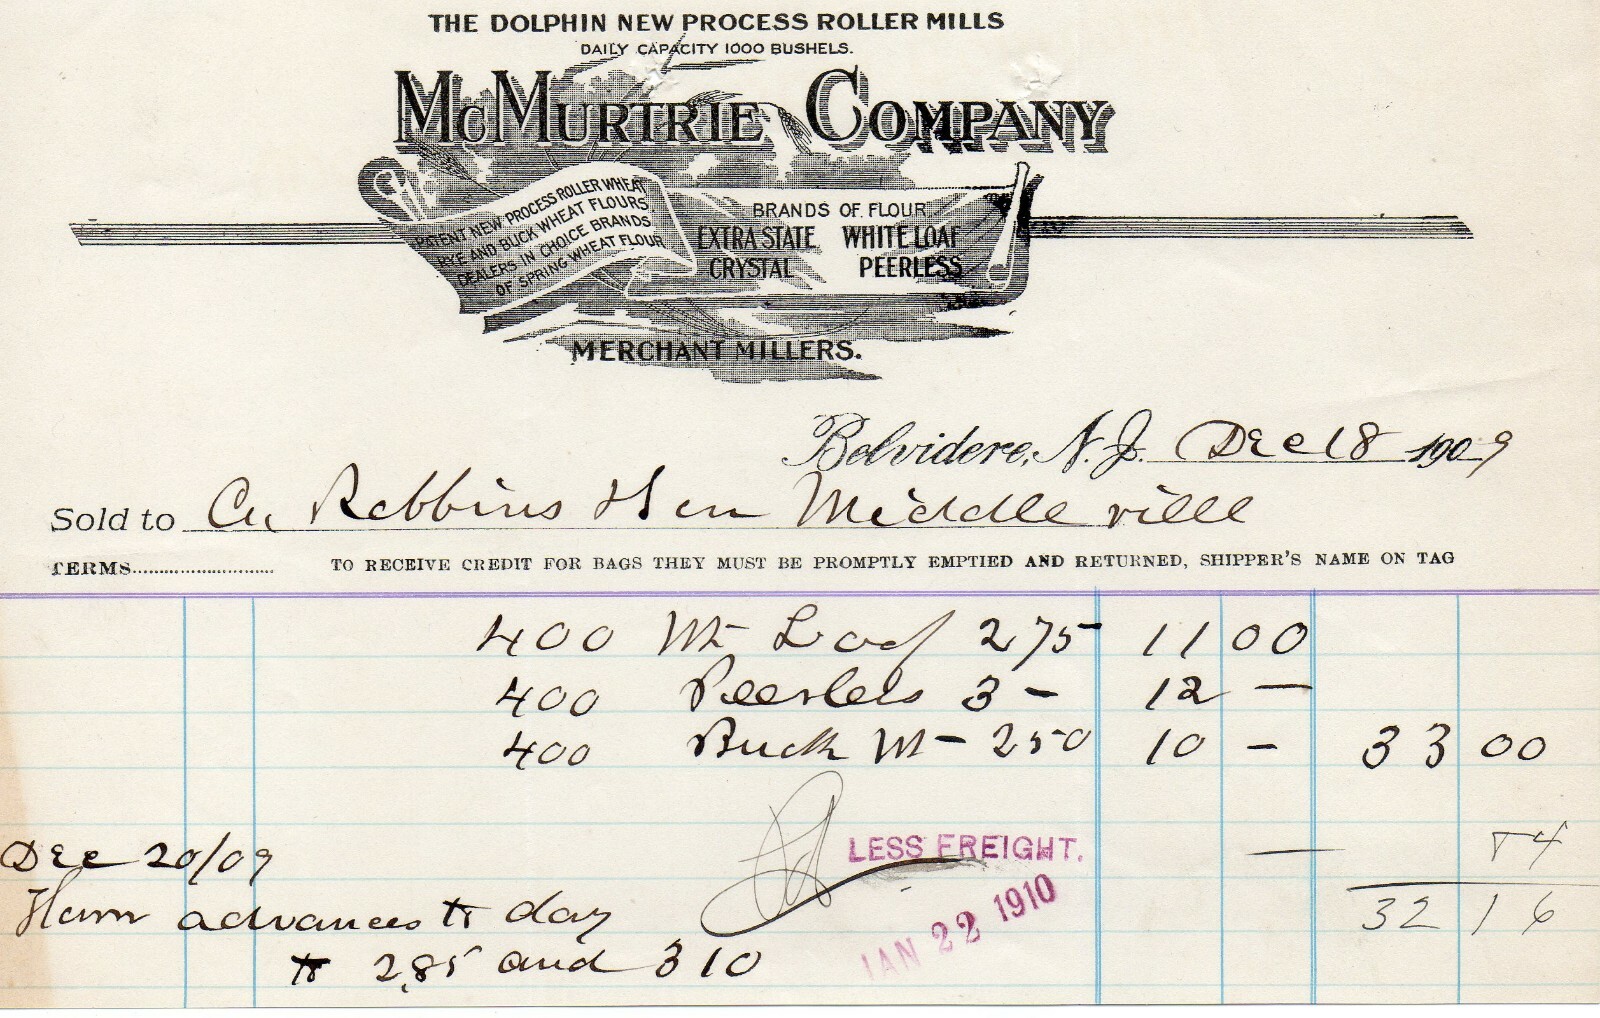 THE DOLPHIN NEW PROCESS ROLLER MILLS
DAILY CAPACITY 1000 BUSHELS.
McMURTRIE COMPANY
PATENT NEW PROCESS ROLLER WHEAT
RYE AND BUCK WHEAT FLOURS
DEALERS IN CHOICE BRANDS
OF SPRING WHEAT FLOUR
BRANDS OF FLOUR
EXTRA STATE WHITE LOAF
CRYSTAL PEERLESS
MERCHANT MILLERS.
Belvidere, N.J. Dec 18 1909
Sold to Robbins Middleville
TERMS TO RECEIVE CREDIT FOR BAGS THEY MUST BE PROMPTLY EMPTIED AND RETURNED, SHIPPER'S NAME ON TAG
400 Wt Loaf 275 11 00
400 Peerless 3 – 12 –
400 Buck W – 250 10 – 33 00
Dec 20/09 LESS FREIGHT. — 84
advances to day JAN 22 1910 32 16
to 2,85 and 310